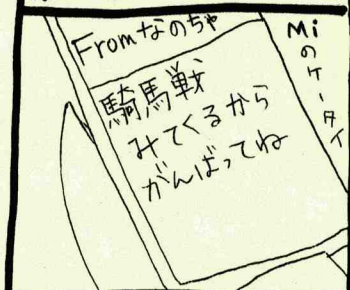 Fromなのちゃ
騎馬戦
みてくるから
がんばってね
Miのケータイ